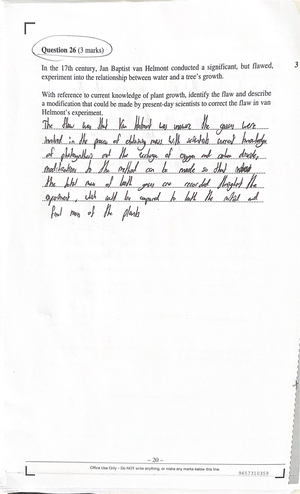 Question 26 (3 marks)
3
In the 17th century, Jan Baptist van Helmont conducted a significant, but flawed,
experiment into the relationship between water and a tree's growth.
With reference to current knowledge of plant growth, identify the flaw and describe
a modification that could be made by present-day scientists to correct the flaw in van
Helmont's experiment.
The flaw was that Van Helmont was unaware the gasses were
involved in the process of obtaining mass. With scientists current knowledge
of photosynthesis and the exchange of oxygen and carbon dioxide,
modifications to the method can be made so that
the total mass of both gases are recorded throughout the
experiment, which will be compared to both the initial and
final mass of the plants
– 20 –
Office Use Only – Do NOT write anything, or make any marks below this line.
9657310359